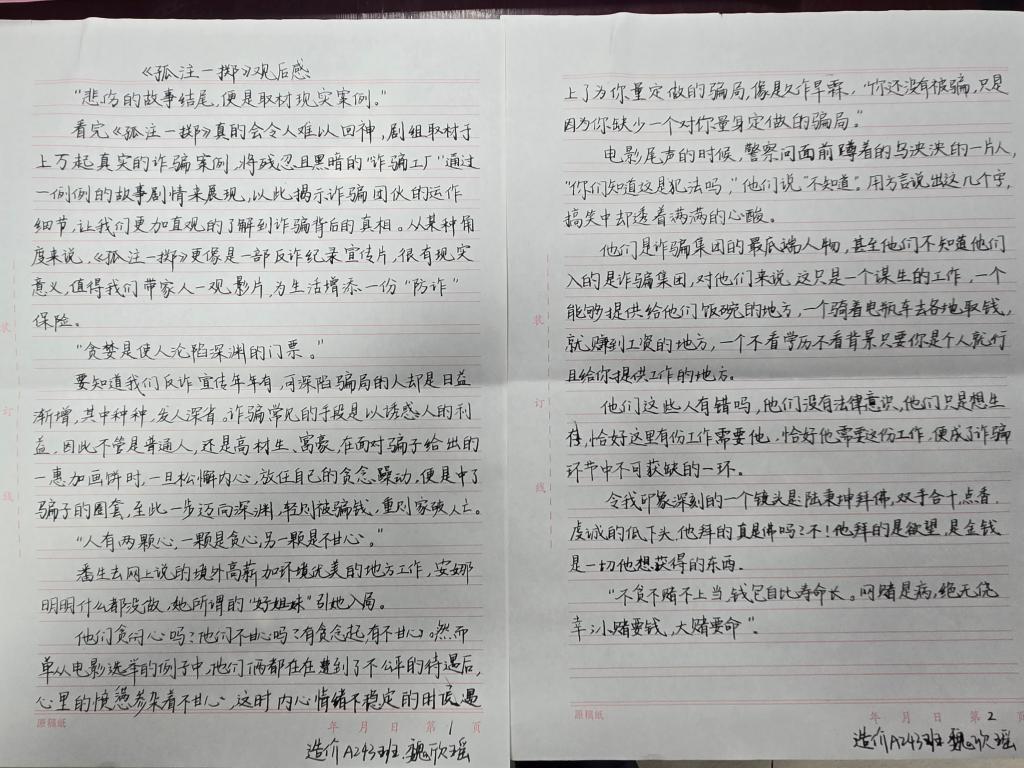 《孤注一掷》观后感
"悲伤的故事结尾,便是取材现实案例。"
看完《孤注一掷》真的会令人难以回神,剧组取材于
上万起真实的诈骗案例,将残忍且黑暗的"诈骗工厂"通过
一例例的故事剧情来展现,以此揭示诈骗团伙的运作
细节,让我们更加直观的了解到诈骗背后的真相。从某种角
度来说,《孤注一掷》更像是一部反诈纪录宣传片,很有现实
意义,值得我们带家人一观影片,为生活增添一份"防诈"
保险。
"贪婪是使人沦陷深渊的门票。"
要知道我们反诈宣传年年有,可深陷骗局的人却是日益
渐增,其中种种,发人深省。诈骗常见的手段是以诱惑人的利
益,因此不管是普通人,还是高材生、富豪,在面对骗子给出的
一惠加画饼时,一旦松懈内心,放任自己的贪念躁动,便是中了
骗子的圈套,至此一步迈向深渊,轻则被骗钱,重则家破人亡。
"人有两颗心,一颗是贪心,另一颗是不甘心。"
潘生去网上说的境外高薪加环境优美的地方工作,安娜
明明什么都没做,她所谓的"好姐妹"引她入局。
他们贪心吗?他们不甘心吗?有贪念起,有不甘心。然而
单从电影选举的例子中,他们俩都在在遭到了不公平的待遇后,
心里的愤懑参杂着不甘心,这时内心情绪不稳定的时候遇
原稿纸 年 月 日 第 1 页
造价A243班.魏欣瑶
上了为你量定做的骗局,像是久作旱霖,"你还没有被骗,只是
因为你缺少一个对你量身定做的骗局。"
电影尾声的时候,警察问面前蹲着的乌泱泱的一片人,
"你们知道这是犯法吗,"他们说"不知道"。用方言说出这几个字,
搞笑中却透着满满的心酸。
他们是诈骗集团的最底端人物,甚至他们不知道他们
入的是诈骗集团,对他们来说,这只是一个谋生的工作,一个
能够提供给他们饭碗的地方,一个骑着电瓶车去各地取钱,
就赚到工资的地方,一个不看学历不看背景只要你是个人就行
且给你提供工作的地方。
他们这些人有错吗,他们没有法律意识,他们只是想生
存,恰好这里有份工作需要他,恰好他需要这份工作,便成了诈骗
环节中不可获缺的一环。
令我印象深刻的一个镜头是陆秉坤拜佛,双手合十,点香,
虔诚的低下头,他拜的真是佛吗?不!他拜的是欲望,是金钱
是一切他想获得的东西.
"不贪不赌不上当,钱包自比寿命长。网赌是病,绝无侥
幸,小赌要钱,大赌要命"。
原稿纸 年 月 日 第 2 页
造价A243班.魏欣瑶
装
订
线
装
订
线